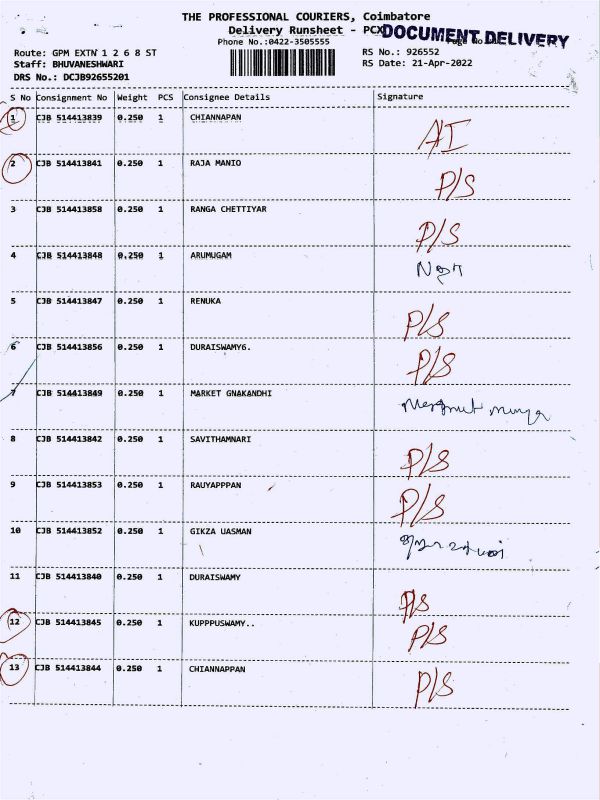 THE PROFESSIONAL COURIERS, Coimbatore
Delivery Runsheet - PCX
DOCUMENT DELIVERY
Phone No.:0422-3505555
Route: GPM EXTN 1 2 6 8 ST
RS No.: 926552
Staff: BHUVANESHWARI
RS Date: 21-Apr-2022
DRS No.: DCJB92655201
S No Consignment No Weight PCS Consignee Details Signature
1 CJB 514413839 0.250 1 CHIANNAPAN A/I
2 CJB 514413841 0.250 1 RAJA MANIO P/S
3 CJB 514413858 0.250 1 RANGA CHETTIYAR P/S
4 CJB 514413848 0.250 1 ARUMUGAM
5 CJB 514413847 0.250 1 RENUKA P/S
6 CJB 514413856 0.250 1 DURAISWAMY6. P/S
7 CJB 514413849 0.250 1 MARKET GNAKANDHI
8 CJB 514413842 0.250 1 SAVITHAMNARI P/S
9 CJB 514413853 0.250 1 RAUYAPPPAN P/S
10 CJB 514413852 0.250 1 GIKZA UASMAN
11 CJB 514413840 0.250 1 DURAISWAMY P/S
12 CJB 514413845 0.250 1 KUPPPUSWAMY.. P/S
13 CJB 514413844 0.250 1 CHIANNAPPAN P/S